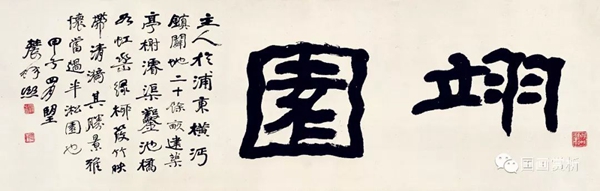 翊園
主人於浦東橫沔
鎮闢地二十餘畝建築
亭榭濬渠鑿池橋
虹綠柳竹映
帶清漪其勝景雅
懷當過半淞園也
甲子四月望
農髯熙
国画赏析